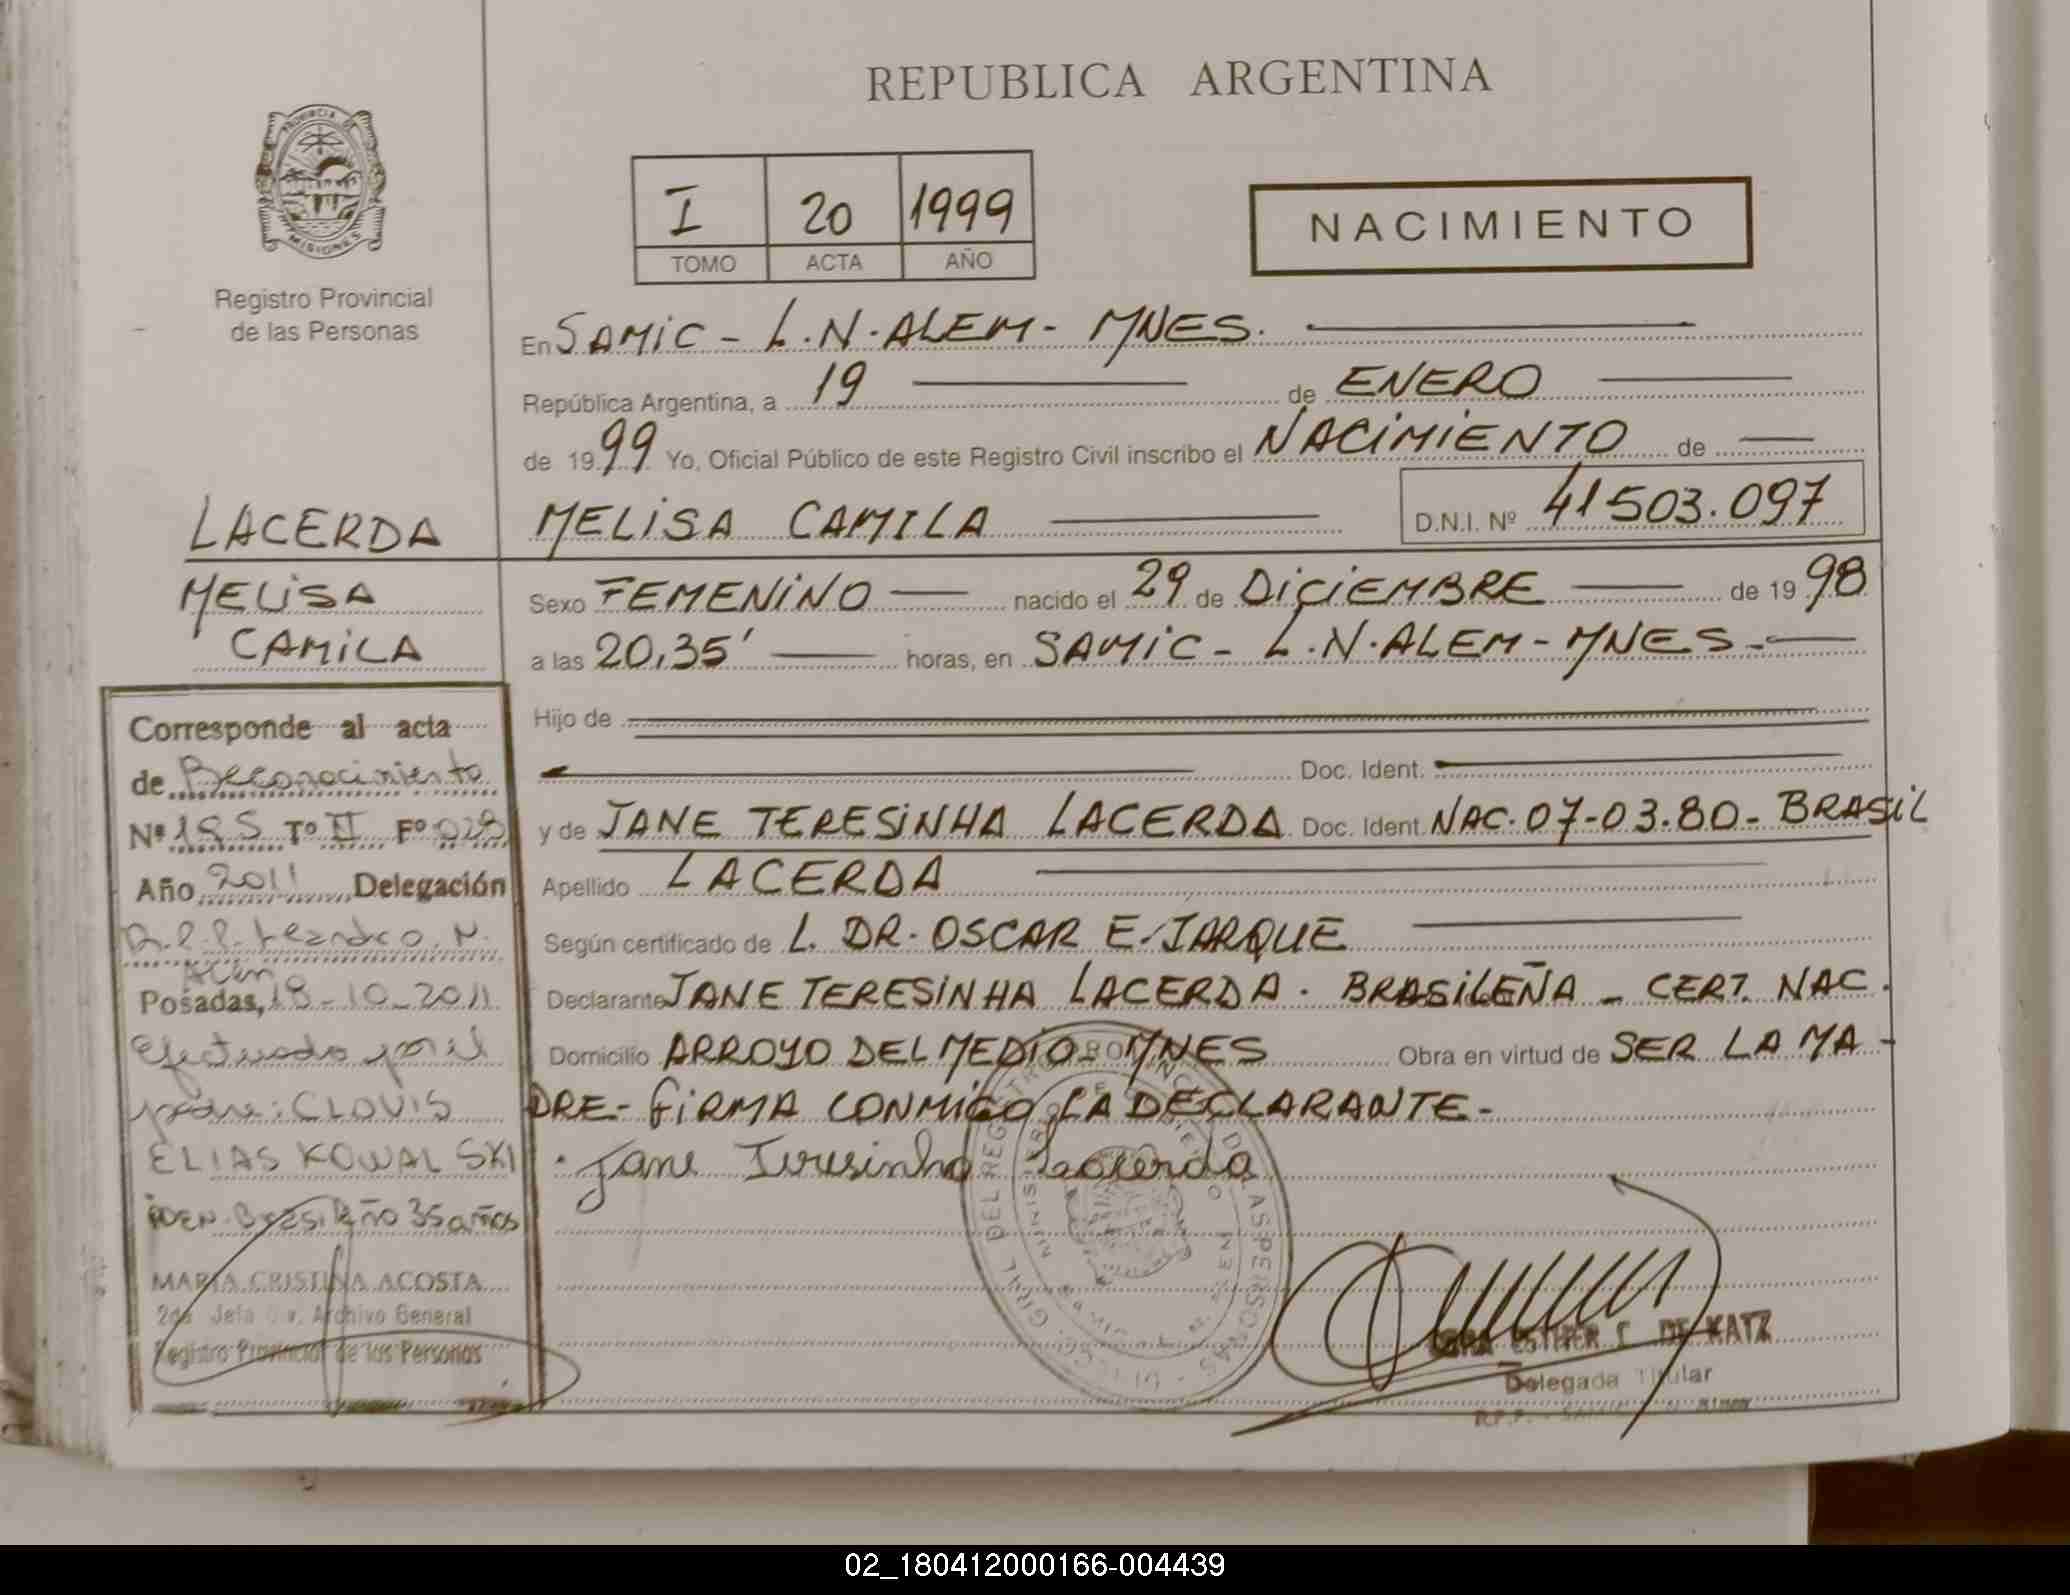 REPUBLICA ARGENTINA
PROVINCIA DE MISIONES
Registro Provincial
de las Personas
I 20 1999
TOMO ACTA AÑO
NACIMIENTO
En SAMIC - L.N. ALEM - MNES.
República Argentina, a 19 de ENERO
de 1999 Yo, Oficial Público de este Registro Civil inscribo el NACIMIENTO de
MELISA CAMILA D.N.I. Nº 41503.097
LACERDA
MELISA
CAMILA
Sexo FEMENINO nacido el 29 de DICIEMBRE de 1998
a las 20,35' horas, en SAMIC - L.N. ALEM - MNES -
Hijo de
Doc. Ident.
y de JANE TERESINHA LACERDA Doc. Ident. NAC. 07-03.80 - BRASIL
Apellido LACERDA
Según certificado de L. DR. OSCAR E. JARQUE
Declarante JANE TERESINHA LACERDA. BRASILEÑA - CERT. NAC.
Domicilio ARROYO DEL MEDIO - MNES Obra en virtud de SER LA MA-
DRE - FIRMA CONMIGO LA DECLARANTE -
Jane Teresinha Lacerda
Corresponde al acta
de Reconocimiento
Nº 195 Tº II Fº 029
Año 2011 Delegación
R.P.P. Leandro N.
Alem
Posadas, 18-10-2011
Efectuado por el
padre: CLOVIS
ELIAS KOWALSKI
Brasileño 35 años
MARIA CRISTINA ACOSTA
2da Jefa Div. Archivo General
Registro Provincial de las Personas
ESTHER C. DE KATZ
Delegada Titular
02_180412000166-004439